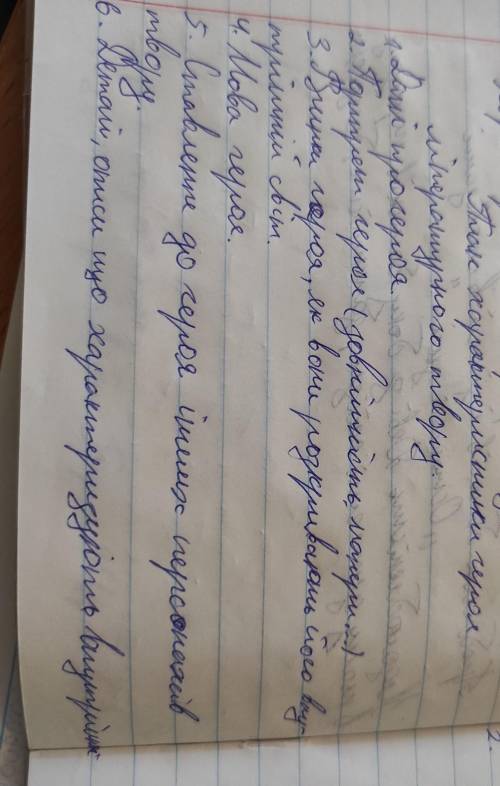 План характеристики героя
літературного твору.
1. Дані про героя
2. Портрет героя (зовнішність, манери...)
3. Вчинки героя, як вони розкривають його вну-
трішній світ.
4. Мова героя.
5. Ставлення до героя інших персонажів
твору.
6. Деталі, описи що характеризують внутрішн-
2.